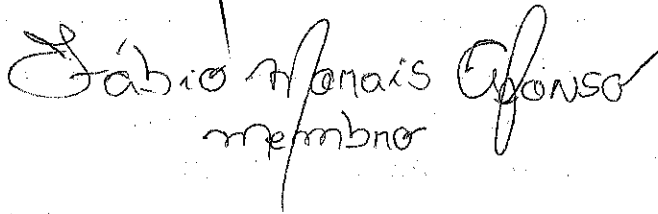 Fábio Morais Afonso
membro